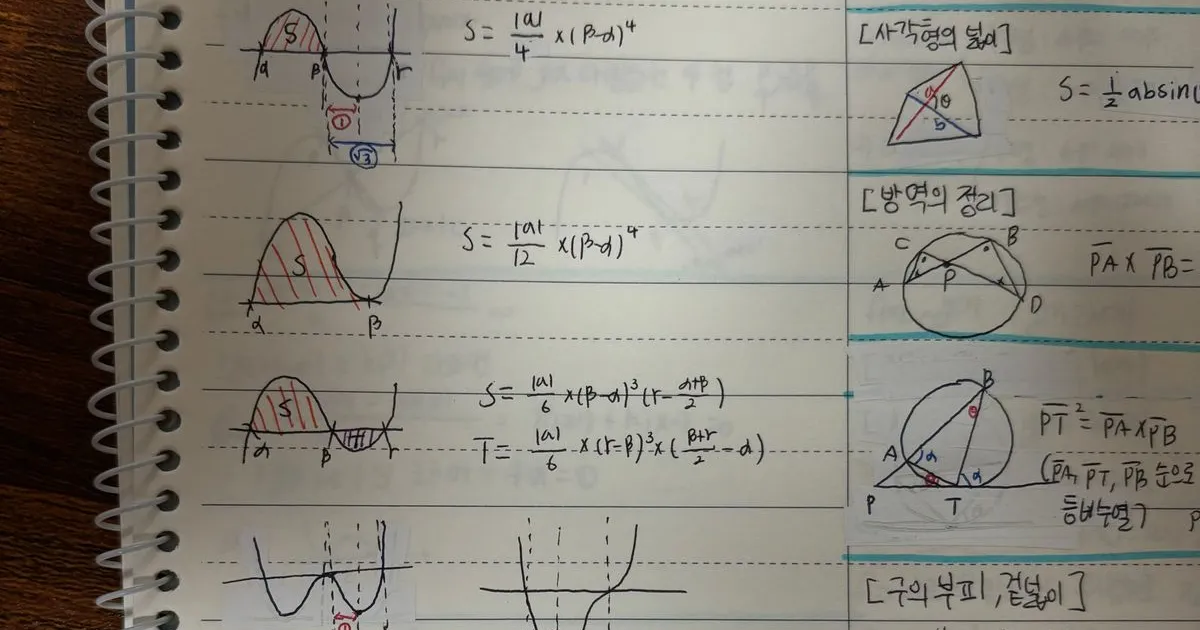 S
α β r
①
√3
S = |a|/4 ×(β-α)⁴
S
α β
S = |a|/12 ×(β-α)⁴
S
α β r
S = |a|/6 ×(β-α)³(r-(α+β)/2)
T = |a|/6 ×(r-β)³×((β+r)/2-α)
①
[사각형의 넓이]
a θ
b
S = 1/2 absin
[방역의 정리]
C B
A P
D
PA × PB =
B
θ
A α
θ α
P T
PT² = PA×PB
(PA, PT, PB 순으로
등비수열)
P
[구의 부피, 겉넓이]